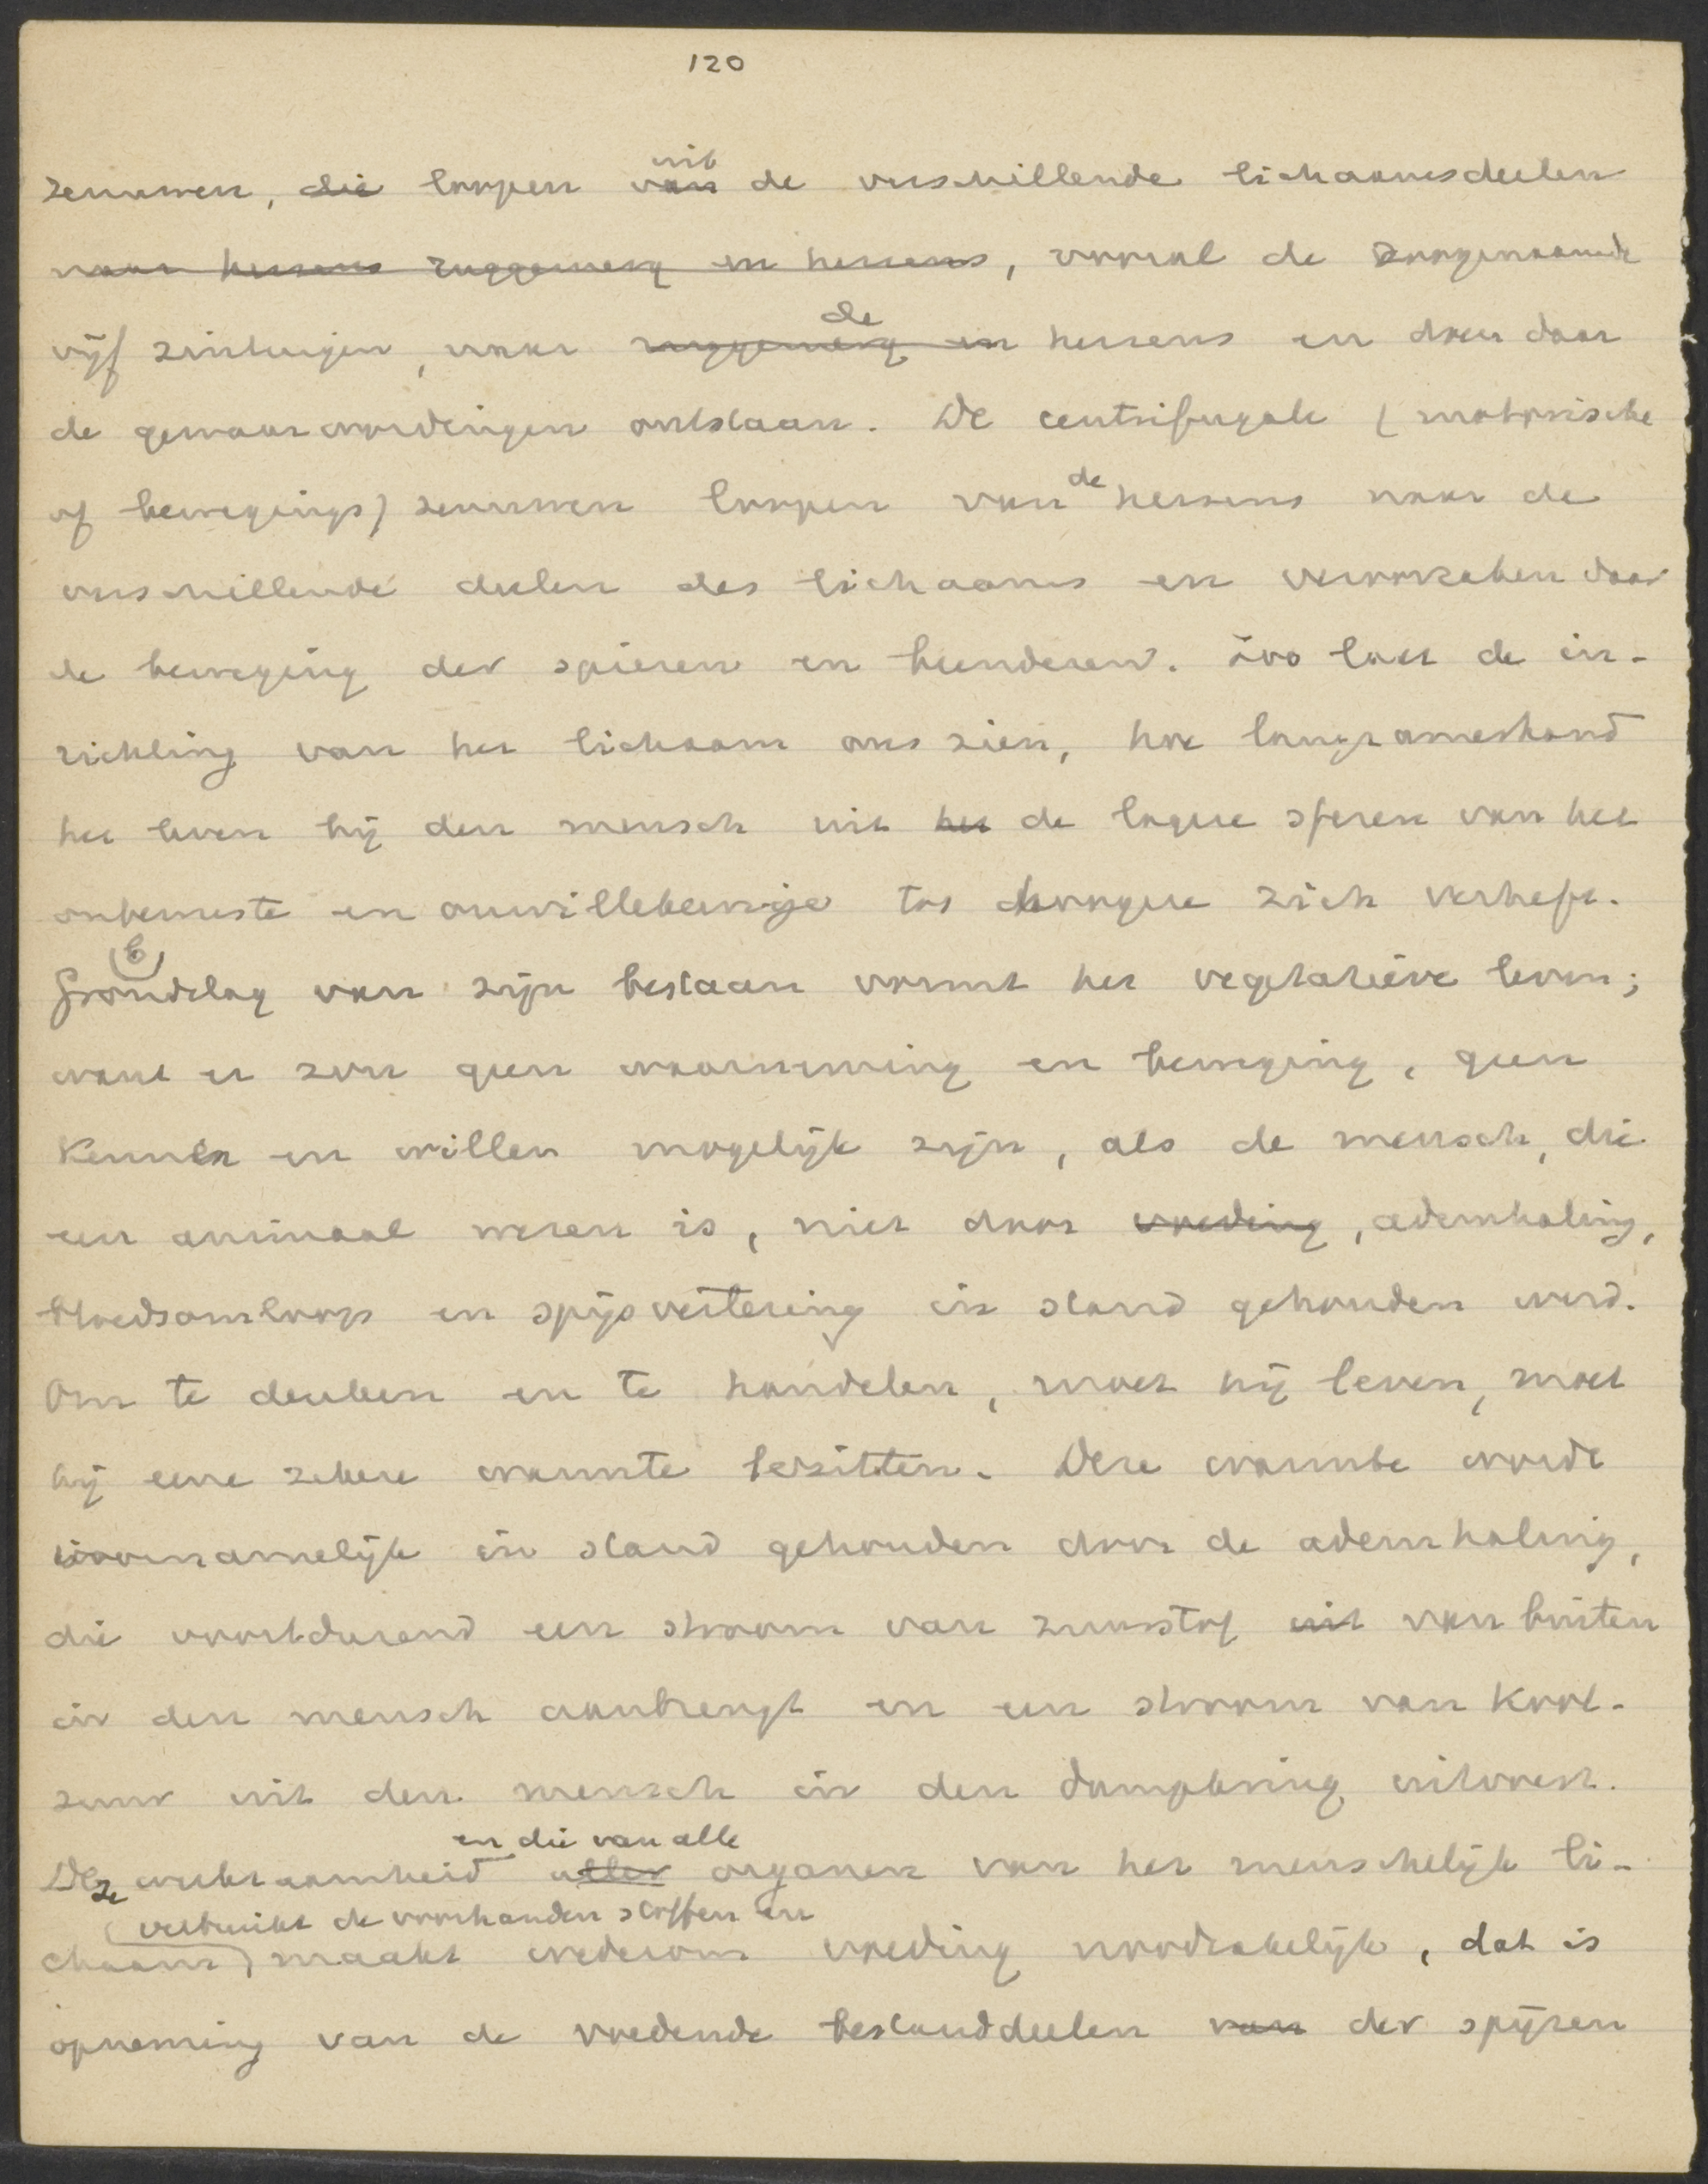 120
zenuwen, die loopen van uit de verschillende lichaamsdeelen
naar hersens ruggemerg en hersens, vooral de zoogenaamde
vijf zintuigen, naar ruggemerg en de hersens en doen daar
de gewaarwordingen ontstaan. De centrifugale (motorische
of bewegings) zenuwen loopen van de hersens naar de
verschillende deelen des lichaams en veroorzaken daar
de beweging der spieren en beenderen. Zoo laat de in-
richting van het lichaam ons zien, hoe langzamerhand
het leven bij den mensch uit het de lagere sferen van het
onbewuste en onwillekeurige tot hoogere zich verheft.
Grondslag van zijn bestaan vormt het vegetatieve leven;
want er zou geen waarneming en beweging, geen
kennen en willen mogelijk zijn, als de mensch, die
een animaal wezen is, niet door voeding, ademhaling,
bloedsomloop en spijsvertering in stand gehouden werd.
Om te denken en te handelen, moet hij leven, moet
hij eene zekere warmte bezitten. Deze warmte wordt
voornamelijk in stand gehouden door de ademhaling,
die voortdurend een stroom van zuurstof uit van buiten
in den mensch aanbrengt en een stroom van kool-
zuur uit den mensch in den dampkring uitloost.
Deze werkzaamheid aller en die van alle organen van het menschelijk li-
chaam) verbruikt de voorhanden stoffen en maakt wederom voeding noodzakelijk, dat is
opneming van de voedende bestanddeelen van der spijzen